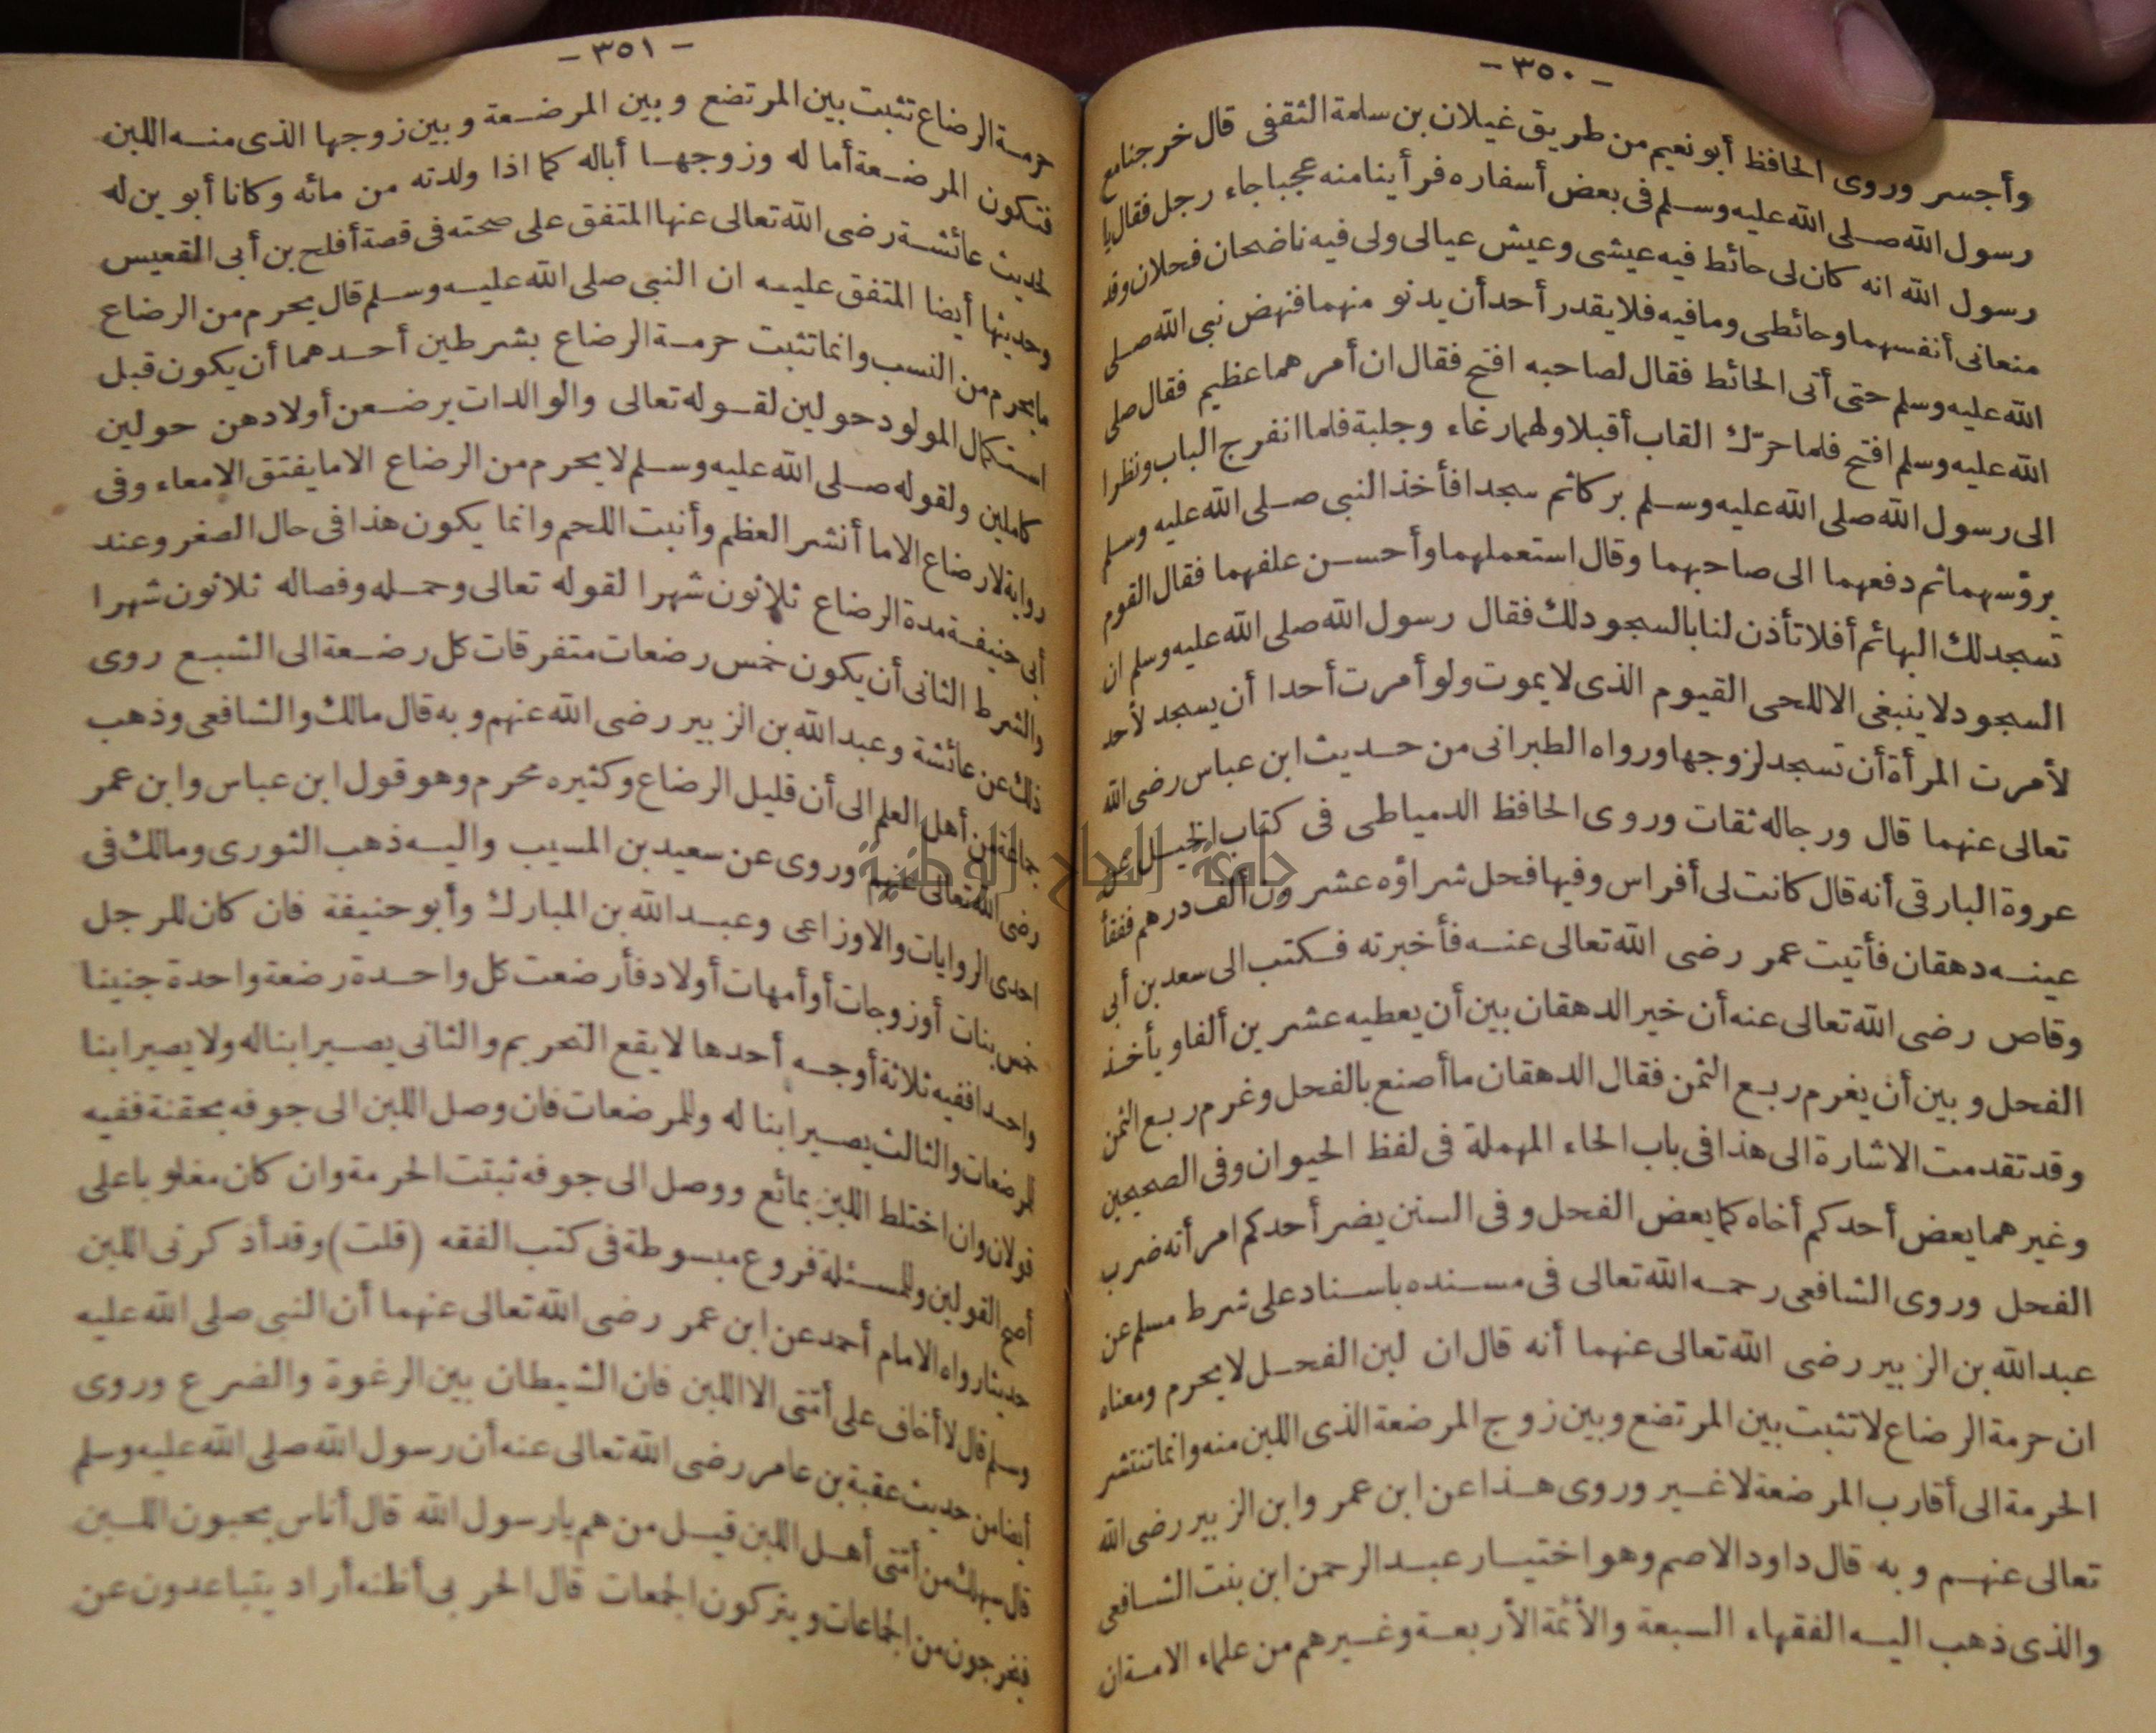 - ٣٥٠ -
وأجسر وروى الحافظ أبو نعيم من طريق غيلان بن سلمة الثقفى قال خرجنا مع
رسول الله صلى الله عليه وسلم فى بعض أسفاره فرأينا منه عجبا جاء رجل فقال يا
رسول الله انه كان لى حائط فيه عيشى وعيش عيالى ولى فيه ناضحان فحلان وقد
منعانى أنفسهما وحائطى ومافيه فلا يقدر أحد أن يدنو منهما فنهض نبى الله صلى
الله عليه وسلم حتى أتى الحائط فقال لصاحبه افتح فقال ان أمرهما عظيم فقال صلى
الله عليه وسلم افتح فلما حرّك القاب أقبلا ولهما رغاء وجلبة فلما انفرج الباب ونظرا
الى رسول الله صلى الله عليه وسلم بركا ثم سجدا فأخذ النبى صلى الله عليه وسلم
برؤسهما ثم دفعهما الى صاحبهما وقال استعملهما وأحسن علفهما فقال القوم
تسجد لك البهائم أفلا تأذن لنا بالسجود لك فقال رسول الله صلى الله عليه وسلم ان
السجود لا ينبغى الا للحى القيوم الذى لا يموت ولو أمرت أحدا أن يسجد لأحد
لأمرت المرأة أن تسجد لزوجها ورواه الطبرانى من حديث ابن عباس رضى الله
تعالى عنهما قال ورجاله ثقات وروى الحافظ الدمياطى فى كتاب الخيل عن
عروة البارقى أنه قال كانت لى أفراس وفيها فحل شراؤه عشرون ألف درهم ففقأ
عينه دهقان فأتيت عمر رضى الله تعالى عنه فأخبرته فكتب الى سعد بن أبى
وقاص رضى الله تعالى عنه أن خير الدهقان بين أن يعطيه عشرين ألفا ويأخذ
الفحل وبين أن يغرم ربع الثمن فقال الدهقان ما أصنع بالفحل وغرم ربع الثمن
وقد تقدمت الاشارة الى هذا فى باب الحاء المهملة فى لفظ الحيوان وفى الصحيحين
وغيرهما يعض أحدكم أخاه كما يعض الفحل وفى السنن يضر أحدكم امرأته ضرب
الفحل وروى الشافعى رحمه الله تعالى فى مسنده باسناد على شرط مسلم عن
عبد الله بن الزبير رضى الله تعالى عنهما أنه قال ان لبن الفحل لا يحرم ومعناه
ان حرمة الرضاع لا تثبت بين المرتضع وبين زوج المرضعة الذى اللبن منه وانما تنتشر
الحرمة الى أقارب المرضعة لا غير وروى هذا عن ابن عمر وابن الزبير رضى الله
تعالى عنهم وبه قال داود الاصم وهو اختيار عبد الرحمن ابن بنت الشافعى
والذى ذهب اليه الفقهاء السبعة والأئمة الأربعة وغيرهم من علماء الامة ان
- ٣٥١ -
حرمة الرضاع تثبت بين المرتضع وبين المرضعة وبين زوجها الذى منه اللبن
فتكون المرضعة أما له وزوجها أباله كما اذا ولدته من مائه وكانا أبوين له
لحديث عائشة رضى الله تعالى عنها المتفق على صحته فى قصة أفلح بن أبى القعيس
وحديثها أيضا المتفق عليه ان النبى صلى الله عليه وسلم قال يحرم من الرضاع
ما يحرم من النسب وانما تثبت حرمة الرضاع بشرطين أحدهما أن يكون قبل
استكمال المولود حولين لقوله تعالى والوالدات يرضعن أولادهن حولين
كاملين ولقوله صلى الله عليه وسلم لا يحرم من الرضاع الا ما يفتق الامعاء وفى
رواية لا رضاع الا ما أنشر العظم وأنبت اللحم وانما يكون هذا فى حال الصغر وعند
أبى حنيفة مدة الرضاع ثلاثون شهرا لقوله تعالى وحمله وفصاله ثلاثون شهرا
والشرط الثانى أن يكون خمس رضعات متفرقات كل رضعة الى الشبع روى
ذلك عن عائشة وعبد الله بن الزبير رضى الله عنهم وبه قال مالك والشافعى وذهب
جماعة من أهل العلم الى أن قليل الرضاع وكثيره محرم وهو قول ابن عباس وابن عمر
رضى الله تعالى عنهم وروى عن سعيد بن المسيب واليه ذهب الثورى ومالك فى
احدى الروايات والاوزاعى وعبد الله بن المبارك وأبو حنيفة فان كان للرجل
خمس بنات أو زوجات أو أمهات أولاد فأرضعت كل واحدة رضعة واحدة جنينا
واحدا ففيه ثلاثة أوجه أحدها لا يقع التحريم والثانى يصير ابنا له ولا يصير ابنا
للمرضعات والثالث يصير ابنا له وللمرضعات فان وصل اللبن الى جوفه بحقنة ففيه
قولان وان اختلط اللبن بمائع ووصل الى جوفه ثبتت الحرمة وان كان مغلوبا على
أصح القولين وللمسئلة فروع مبسوطة فى كتب الفقه (قلت) وقد أذكرنى اللبن
حديثا رواه الامام أحمد عن ابن عمر رضى الله تعالى عنهما أن النبى صلى الله عليه
وسلم قال لا أخاف على أمّتى الا اللبن فان الشيطان بين الرغوة والضرع وروى
أيضا من حديث عقبة بن عامر رضى الله تعالى عنه أن رسول الله صلى الله عليه وسلم
قال سيهلك من أمّتى أهل اللبن قيل من هم يا رسول الله قال أناس يحبون اللبن
فيخرجون من الجماعات ويتركون الجمعات قال الحربى أظنه أراد يتباعدون عن
جامعة النجاح الوطنية